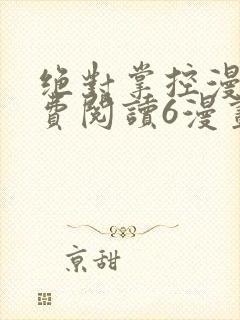 絶對掌控漫
費閱讀6漫畫
京甜